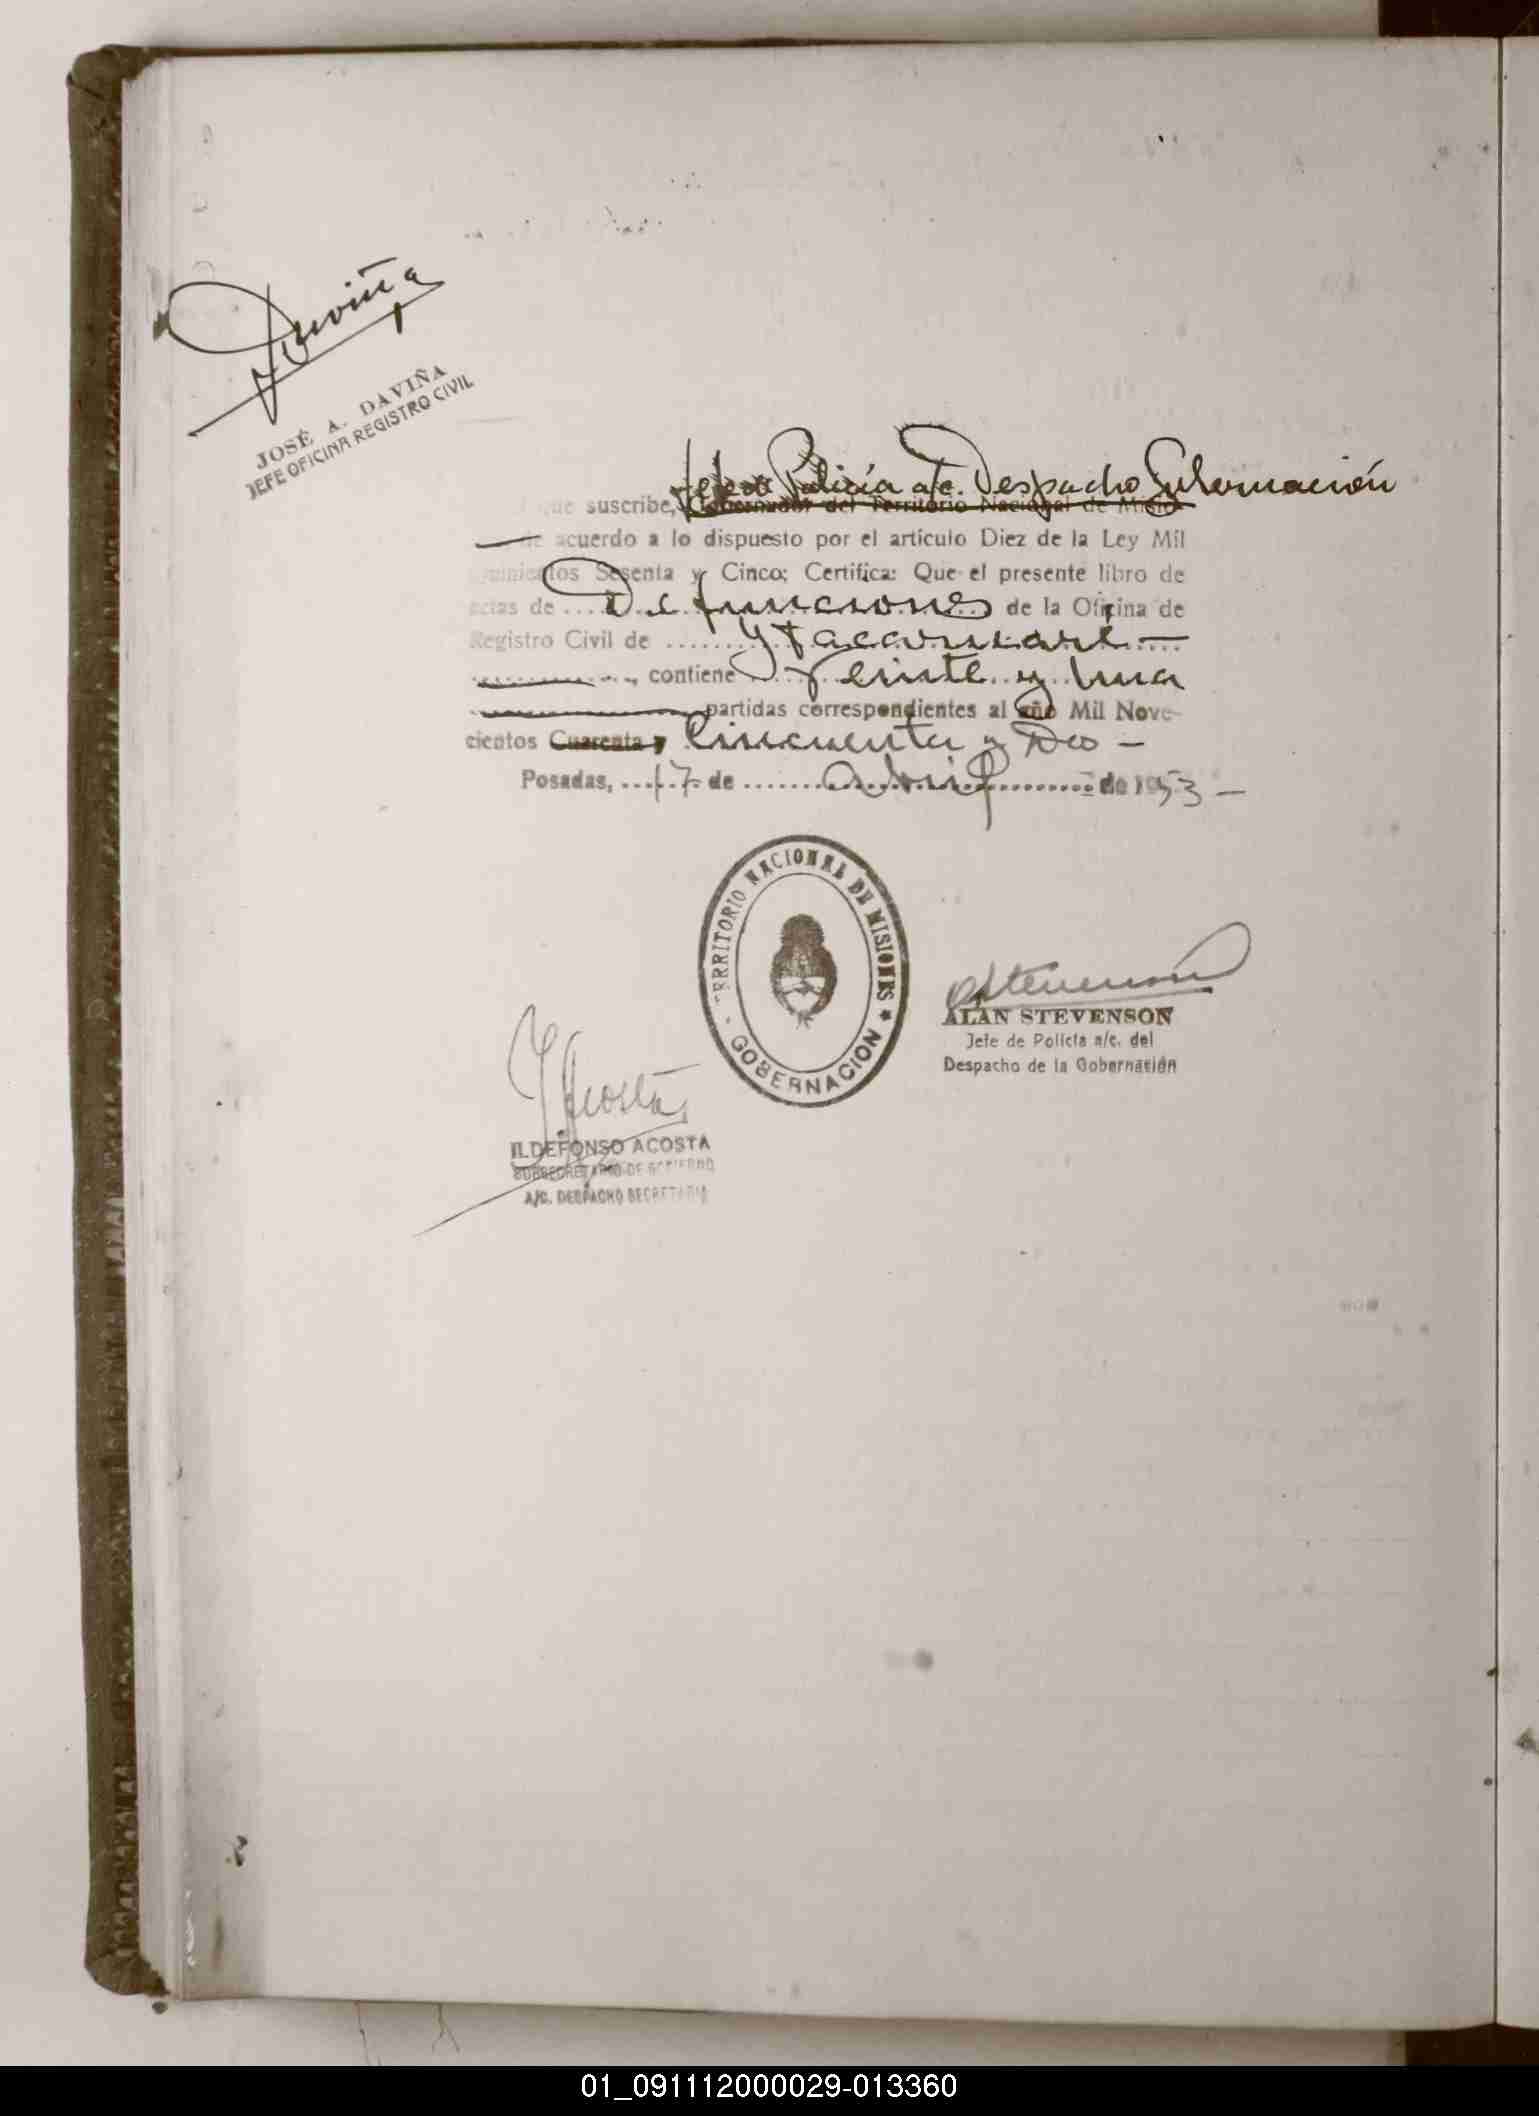 Daviña
JOSÉ A. DAVIÑA
JEFE OFICINA REGISTRO CIVIL
Jefe de Policía a/c. Despacho Gobernación
que suscribe, Gobernador del Territorio Nacional de Misio-
de acuerdo a lo dispuesto por el artículo Diez de la Ley Mil
quinientos Sesenta y Cinco; Certifica: Que el presente libro de
actas de Defunciones de la Oficina de
Registro Civil de Ytacaruaré —
contiene Veinte y una
partidas correspondientes al año Mil Nove-
cientos Cuarenta y Cincuenta y Dos —
Posadas, 17 de abril de 1953 —
TERRITORIO NACIONAL DE MISIONES
- GOBERNACION
Stevenson
ALAN STEVENSON
Jefe de Policía a/c. del
Despacho de la Gobernación
Y Acosta
ILDEFONSO ACOSTA
SUBSECRETARIO DE GOBIERNO
A/C. DESPACHO SECRETARIA
01_091112000029-013360